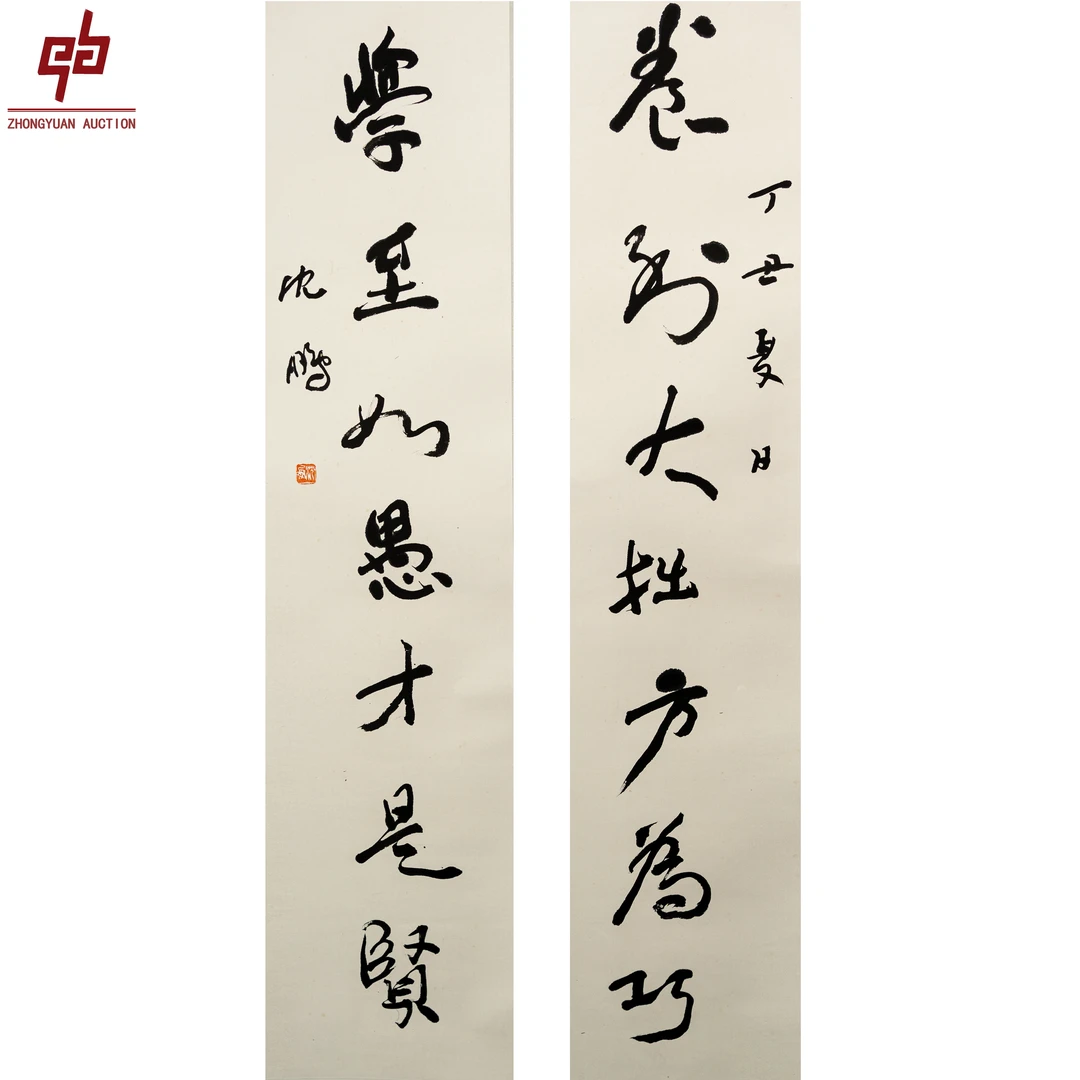 ZHONGYUAN AUCTION
丁丑夏日
養到大拙方為巧
學至如愚才是賢
沈鵬